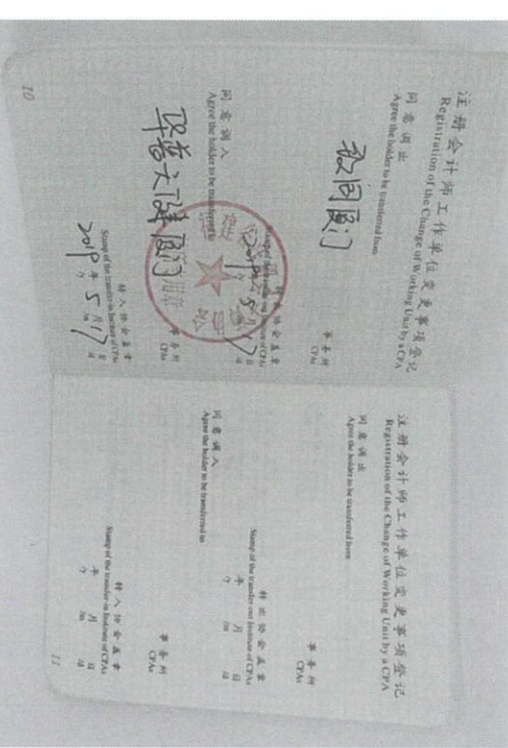 注册会计师工作单位变更事项登记
Registration of the Change of Working Unit by a CPA
同意调出
Agree the holder to be transferred from
致同厦门
事务所
CPAs
转出协会盖章
Stamp of the transfer-out Institute of CPAs
2019年5月17日
同意调入
Agree the holder to be transferred to
华普天健厦门
事务所
CPAs
转入协会盖章
Stamp of the transfer-in Institute of CPAs
2019年5月17日
/y /m /d
10
注册会计师工作单位变更事项登记
Registration of the Change of Working Unit by a CPA
同意调出
Agree the holder to be transferred from
事务所
CPAs
转出协会盖章
Stamp of the transfer-out Institute of CPAs
年 月 日
/y /m /d
同意调入
Agree the holder to be transferred to
事务所
CPAs
转入协会盖章
Stamp of the transfer-in Institute of CPAs
年 月 日
/y /m /d
11